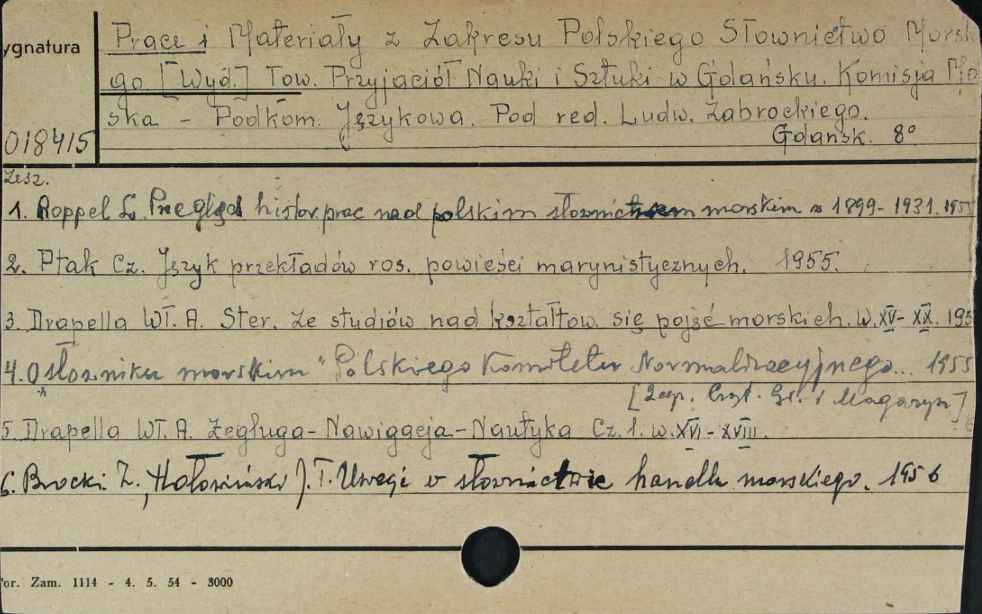 ygnatura
Prace i Materiały z Zakresu Polskiego Słownictwa Morsk
go [Wyd.] Tow. Przyjaciół Nauki i Sztuki w Gdańsku. Komisja Mo
ska - Podkom. Językowa. Pod red. Ludw. Zabrockiego.
018415
Gdańsk. 8°
Zesz.
1. Roppel L. Przegląd histor. prac nad polskim słownictwem morskim z 1899-1931. 1955
2. Ptak Cz. Język przekładów ros. powieści marynistycznych. 1955.
3. Drapella Wł. A. Ster. Ze studiów nad kształtow. się pojęć morskich. W. XV-XX. 195
4. O "słowniku morskim" Polskiego Komitetu Normalizacyjnego... 1955
[2 egz. Czyt. Gł. i Magazyn]
5. Drapella Wł. A. Żegluga-Nawigacja-Nautyka Cz. 1. w. XVI-XVIII.
6. Brocki Z., Hołowiński J. T. Uwagi o słownictwie handlu morskiego. 1956
or. Zam. 1114 - 4. 5. 54 - 3000